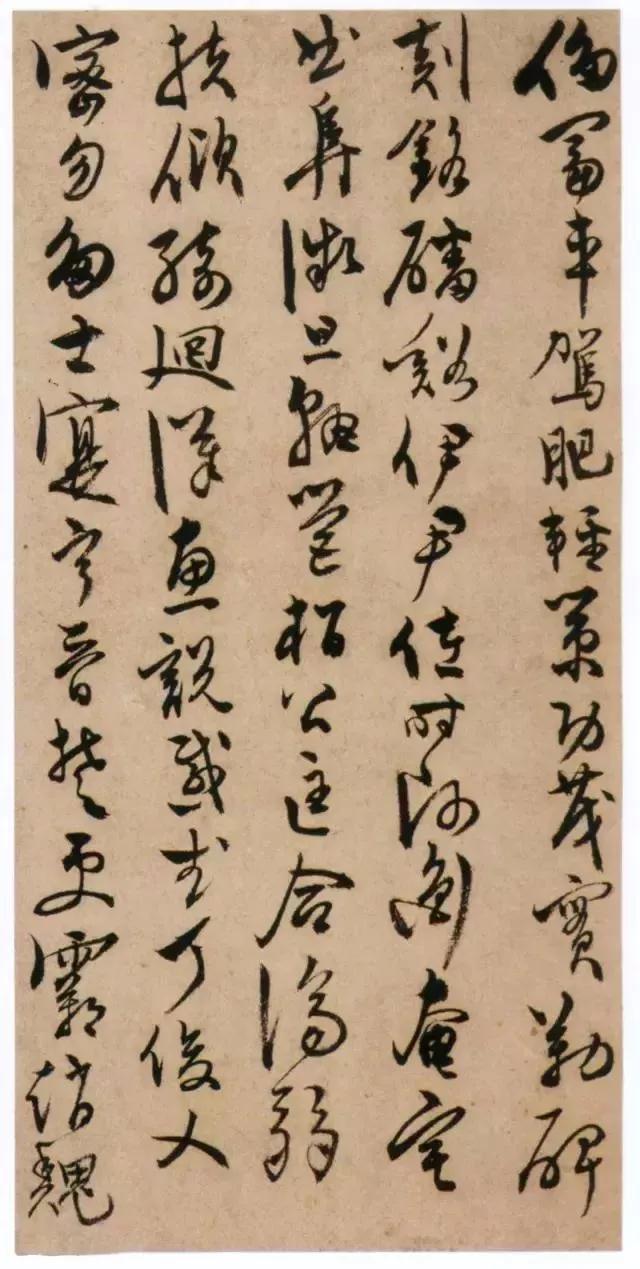 侈富車駕肥輕策功茂實勒碑
刻銘磻谿伊尹佐時阿衡奄宅
曲阜微旦孰營桓公匡合濟弱
扶傾綺迴漢惠說感武丁俊乂
密勿多士寔寧晉楚更霸趙魏